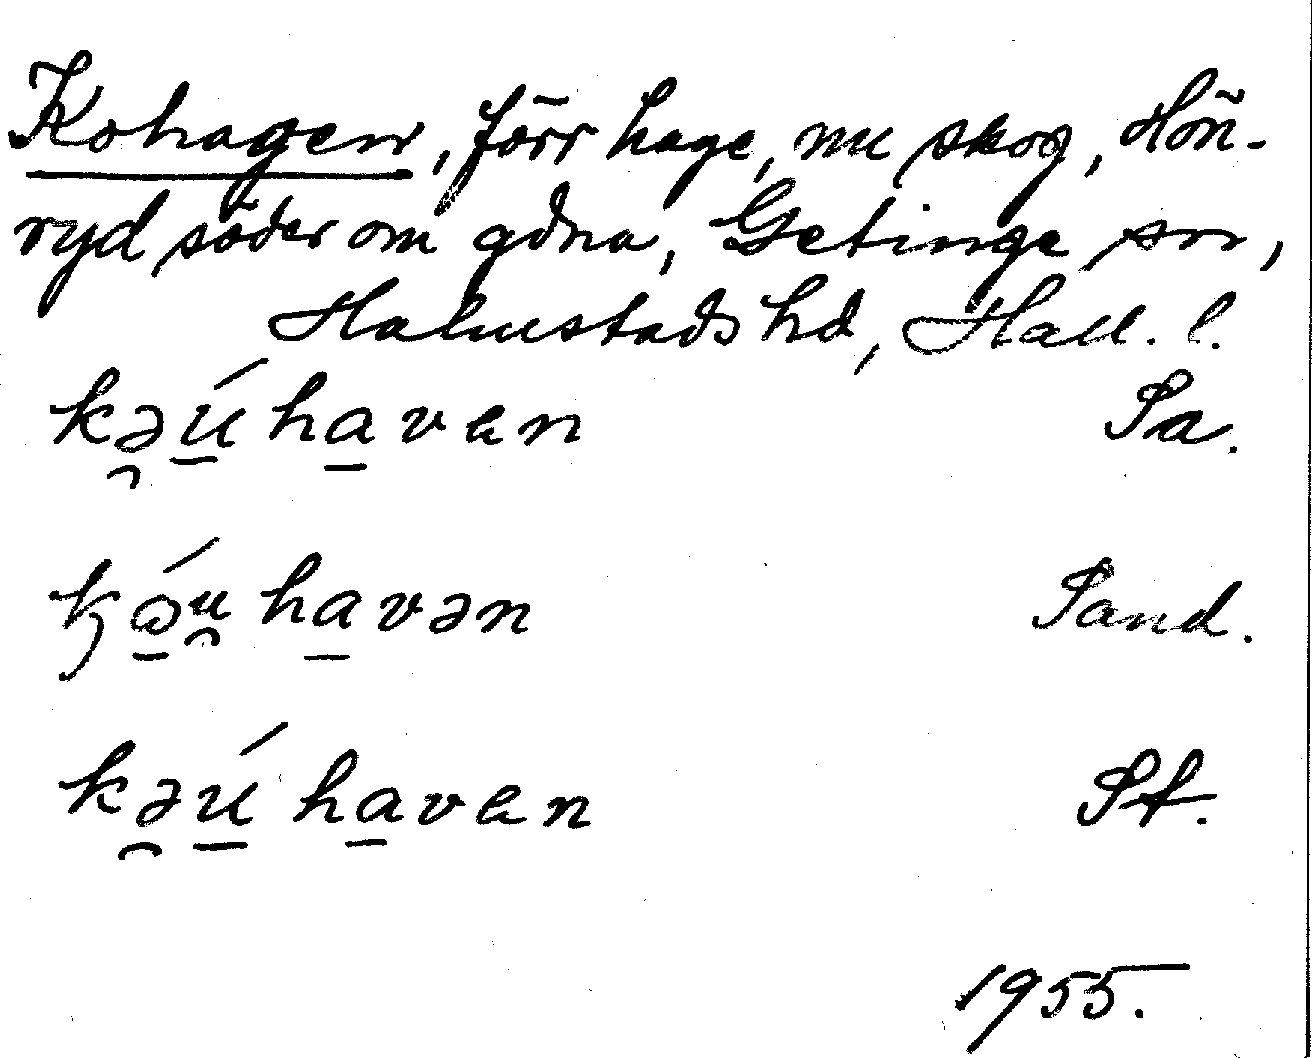 Kohagen, förr hage, nu skog, Hön-
ryd söder om gdna, Getinge sn,
Halmstads hd, Hall. l.
kə̯ú̱ha̱ven Sa.
ꝁə̱́u̯ha̱vən Sand.
kə̯ú̱ha̱ven St.
1955.